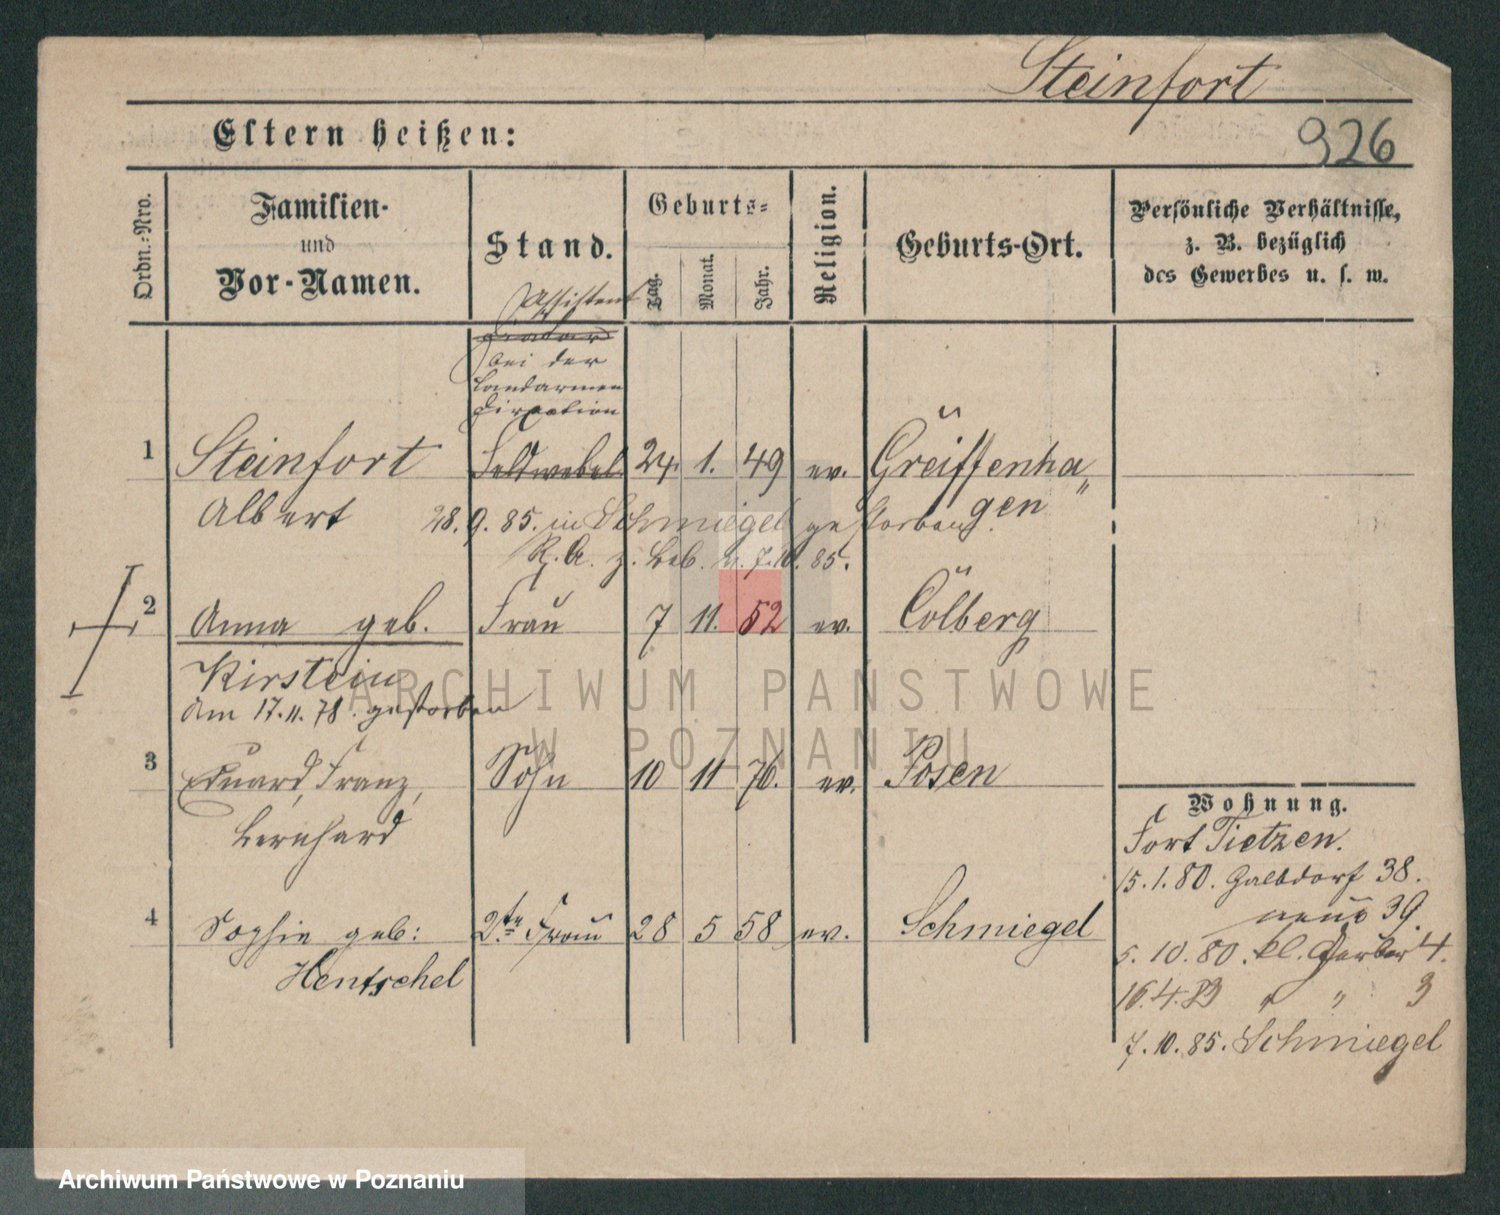 Steinfort
Eltern heißen:
926
Ordn.-Nro.
Familien-
und
Vor-Namen.
Stand.
Geburts-
Tag.
Monat.
Jahr.
Religion.
Geburts-Ort.
Persönliche Verhältnisse,
z. B. bezüglich
des Gewerbes u. s. w.
Assistent
bei der
Landarmen
Direction
1 Steinfort Feldwebel 24. 1. 49 ev. Greiffenha„
gen"
Albert 28.9.85. in Schmiegel gestorben.
R. A. z. Leb. 7.10.85.
2 Anna geb. Frau 7 11. 52 ev. Colberg
Kirstein
am 17.11.78. gestorben
3 Eduard, Franz, Sohn 10 11 76. ev. Posen
Bernhard
4 Sophie geb: 2te Frau 28 5 58 ev. Schmiegel
Hentschel
Wohnung.
Fort Tietzen.
15.1.80. Halbdorf 38.
neue 39.
5.10.80. kl. Gerber 4.
16.4.83 " " 3
7.10.85. Schmiegel
ARCHIWUM PAŃSTWOWE
W POZNANIU
Archiwum Państwowe w Poznaniu